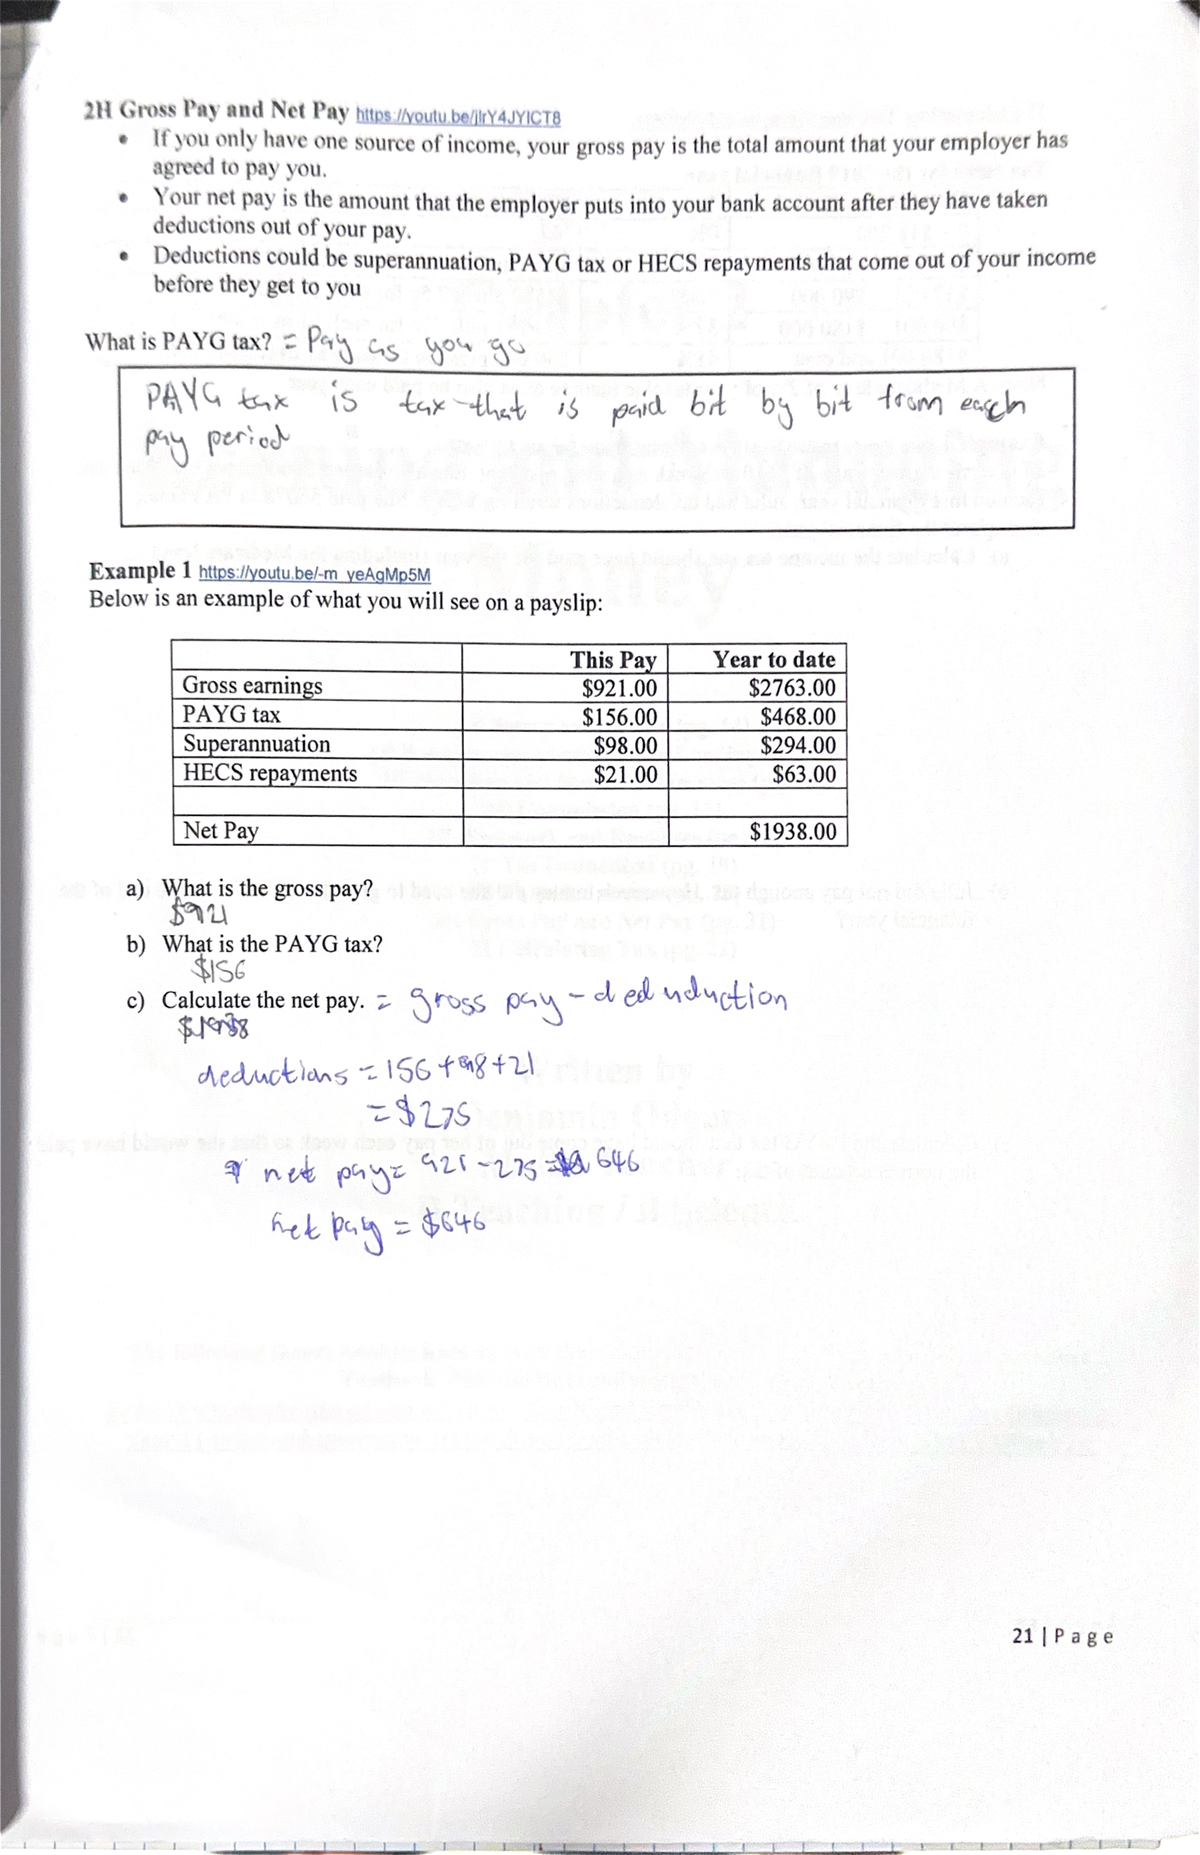 2H Gross Pay and Net Pay https://youtu.be/jlrY4JYICT8
• If you only have one source of income, your gross pay is the total amount that your employer has
agreed to pay you.
• Your net pay is the amount that the employer puts into your bank account after they have taken
deductions out of your pay.
• Deductions could be superannuation, PAYG tax or HECS repayments that come out of your income
before they get to you
What is PAYG tax? = Pay as you go
PAYG tax is tax that is paid bit by bit from each
pay period
Example 1 https://youtu.be/-m_yeAgMp5M
Below is an example of what you will see on a payslip:
This Pay Year to date
Gross earnings $921.00 $2763.00
PAYG tax $156.00 $468.00
Superannuation $98.00 $294.00
HECS repayments $21.00 $63.00
Net Pay $1938.00
a) What is the gross pay?
$921
b) What is the PAYG tax?
$156
c) Calculate the net pay. = gross pay - deduduction
$1938
deductions = 156 + 98 + 21
= $275
net pay = 921 - 275 = 646
net pay = $646
21 | Page